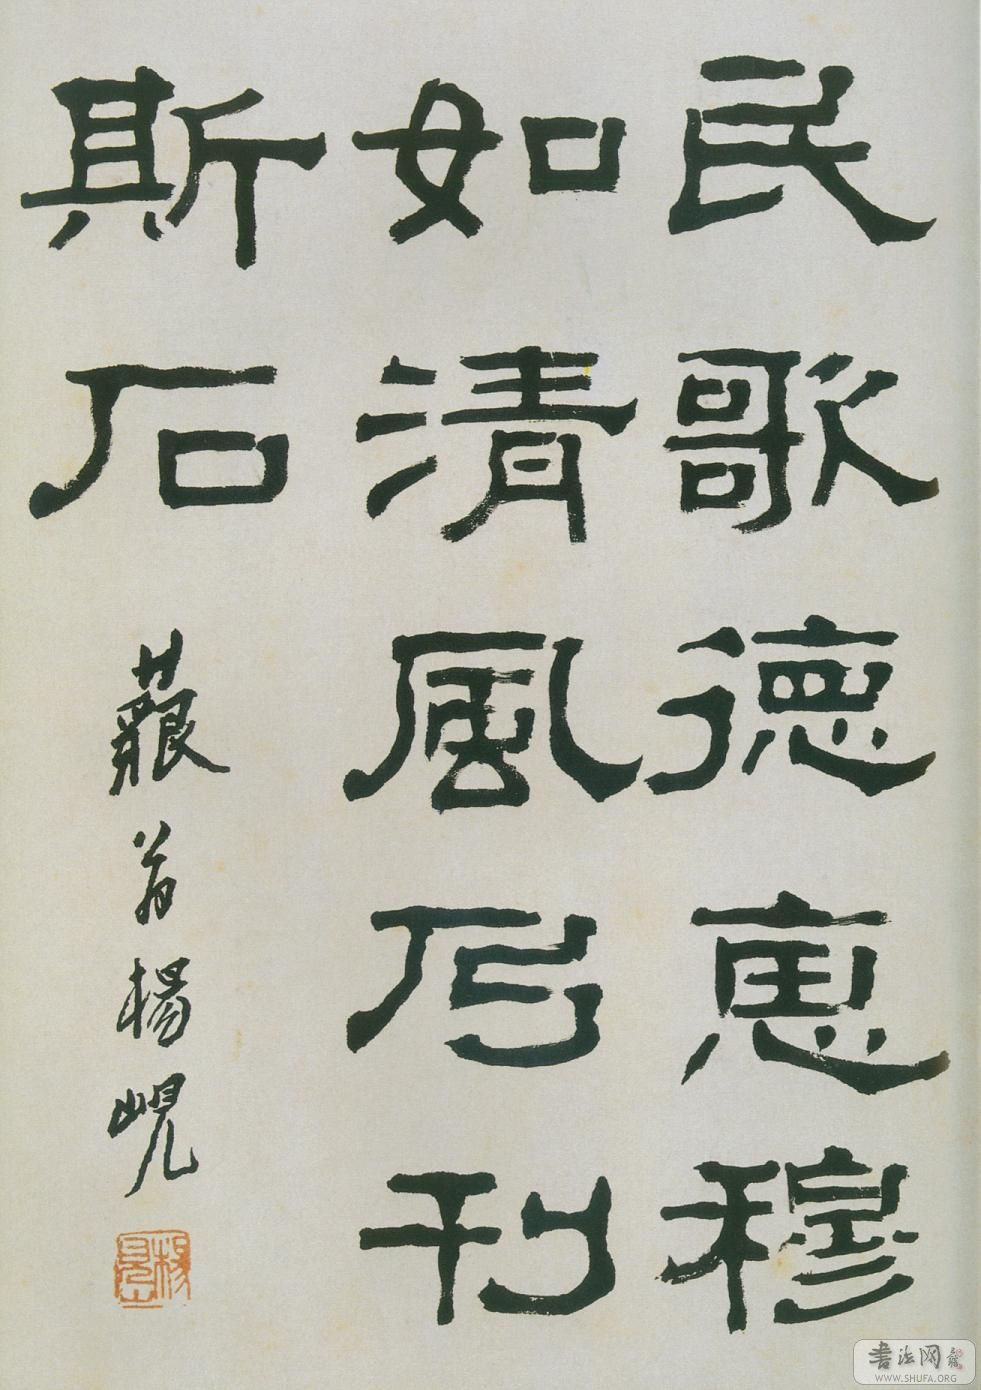 民歌德恵穆
如清風乃刊
斯石
藐翁楊峴
楊峴
書法网
WWW.SHUFA.ORG